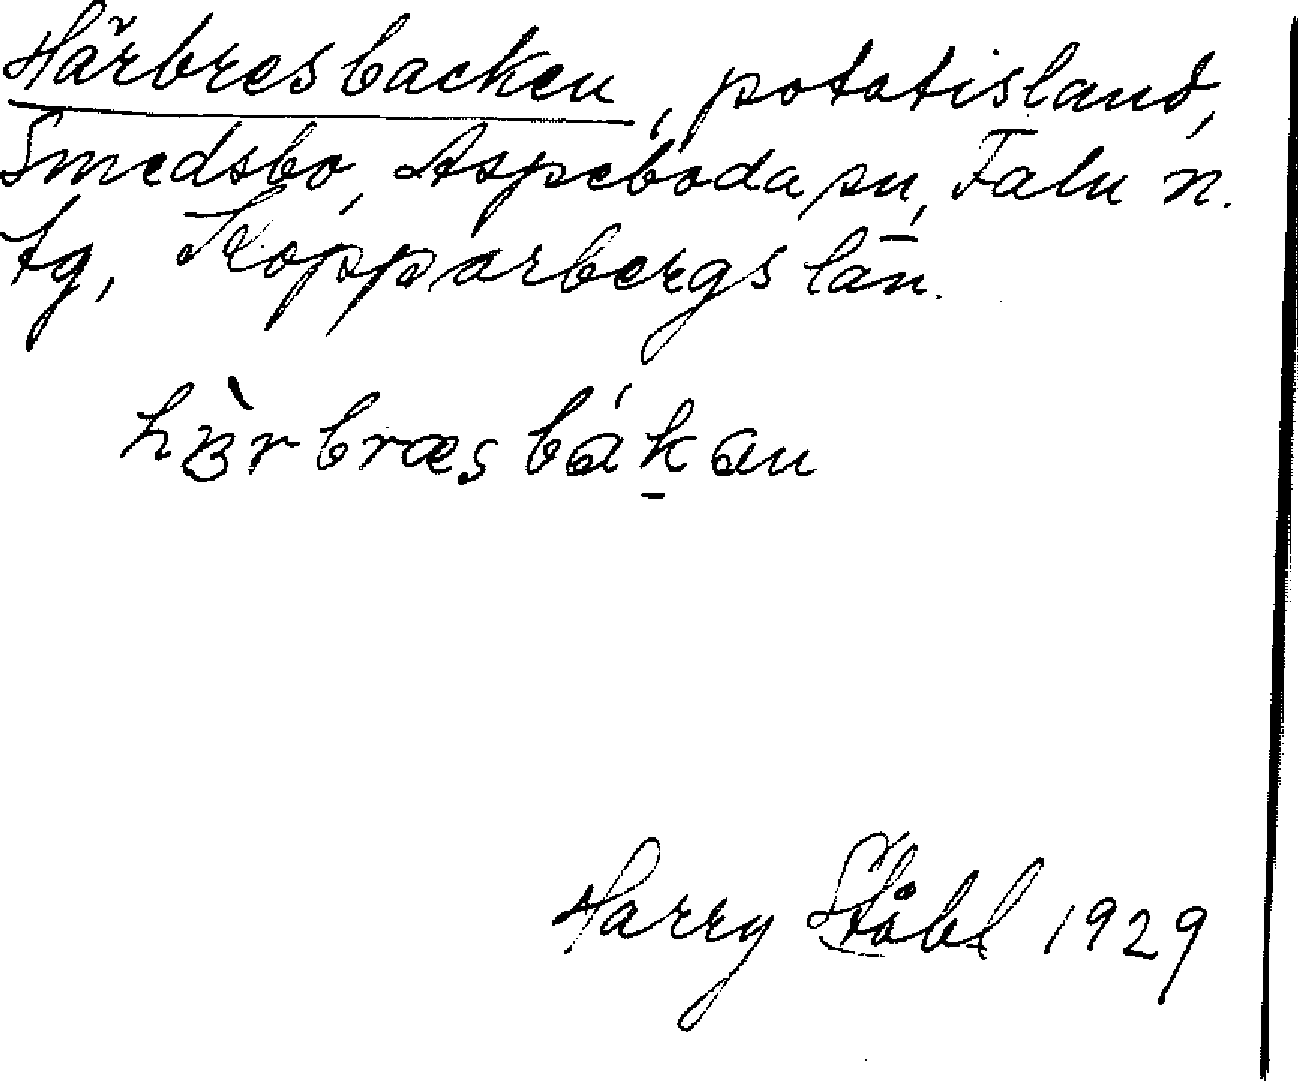 Härbresbacken, potatisland,
Smedsbo, Aspeboda sn, Falu n.
tg, Kopparbergs län.
Harry Ståhl 1929